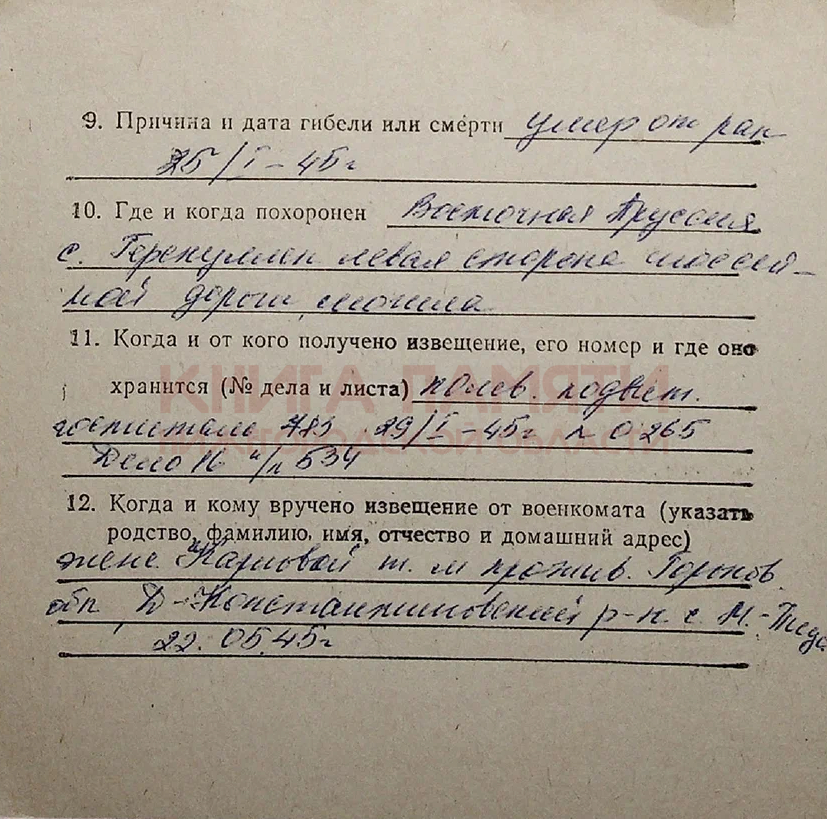 9. Причина и дата гибели или смерти умер от ран
25/I-45г
10. Где и когда похоронен Восточная Пруссия
с. левая сторона шоссей-
ной дороги могила
11. Когда и от кого получено извещение, его номер и где оно
хранится (№ дела и листа) полев. подвиж.
госпиталь 785 29/I-45г № 0265
Дело 16 н/п 534
12. Когда и кому вручено извещение от военкомата (указать
родство, фамилию, имя, отчество и домашний адрес)
жене Карповой т. м прожив. Горьков
обл Д-Константиновский р-н с М.-
22.05.45г
КНИГА ПАМЯТИ
НИЖЕГОРОДСКОЙ ОБЛАСТИ